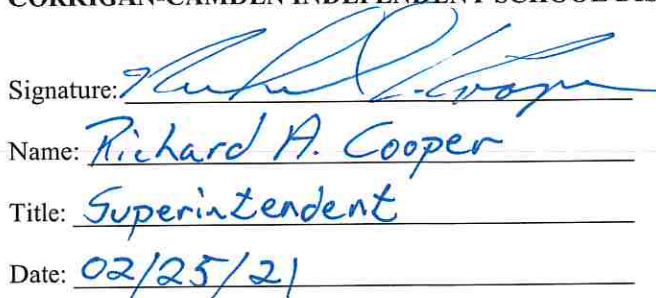 CORRIGAN-CAMDEN INDEPENDENT SCHOOL
Signature:
Name: Richard A. Cooper
Title: Superintendent
Date: 02/25/21